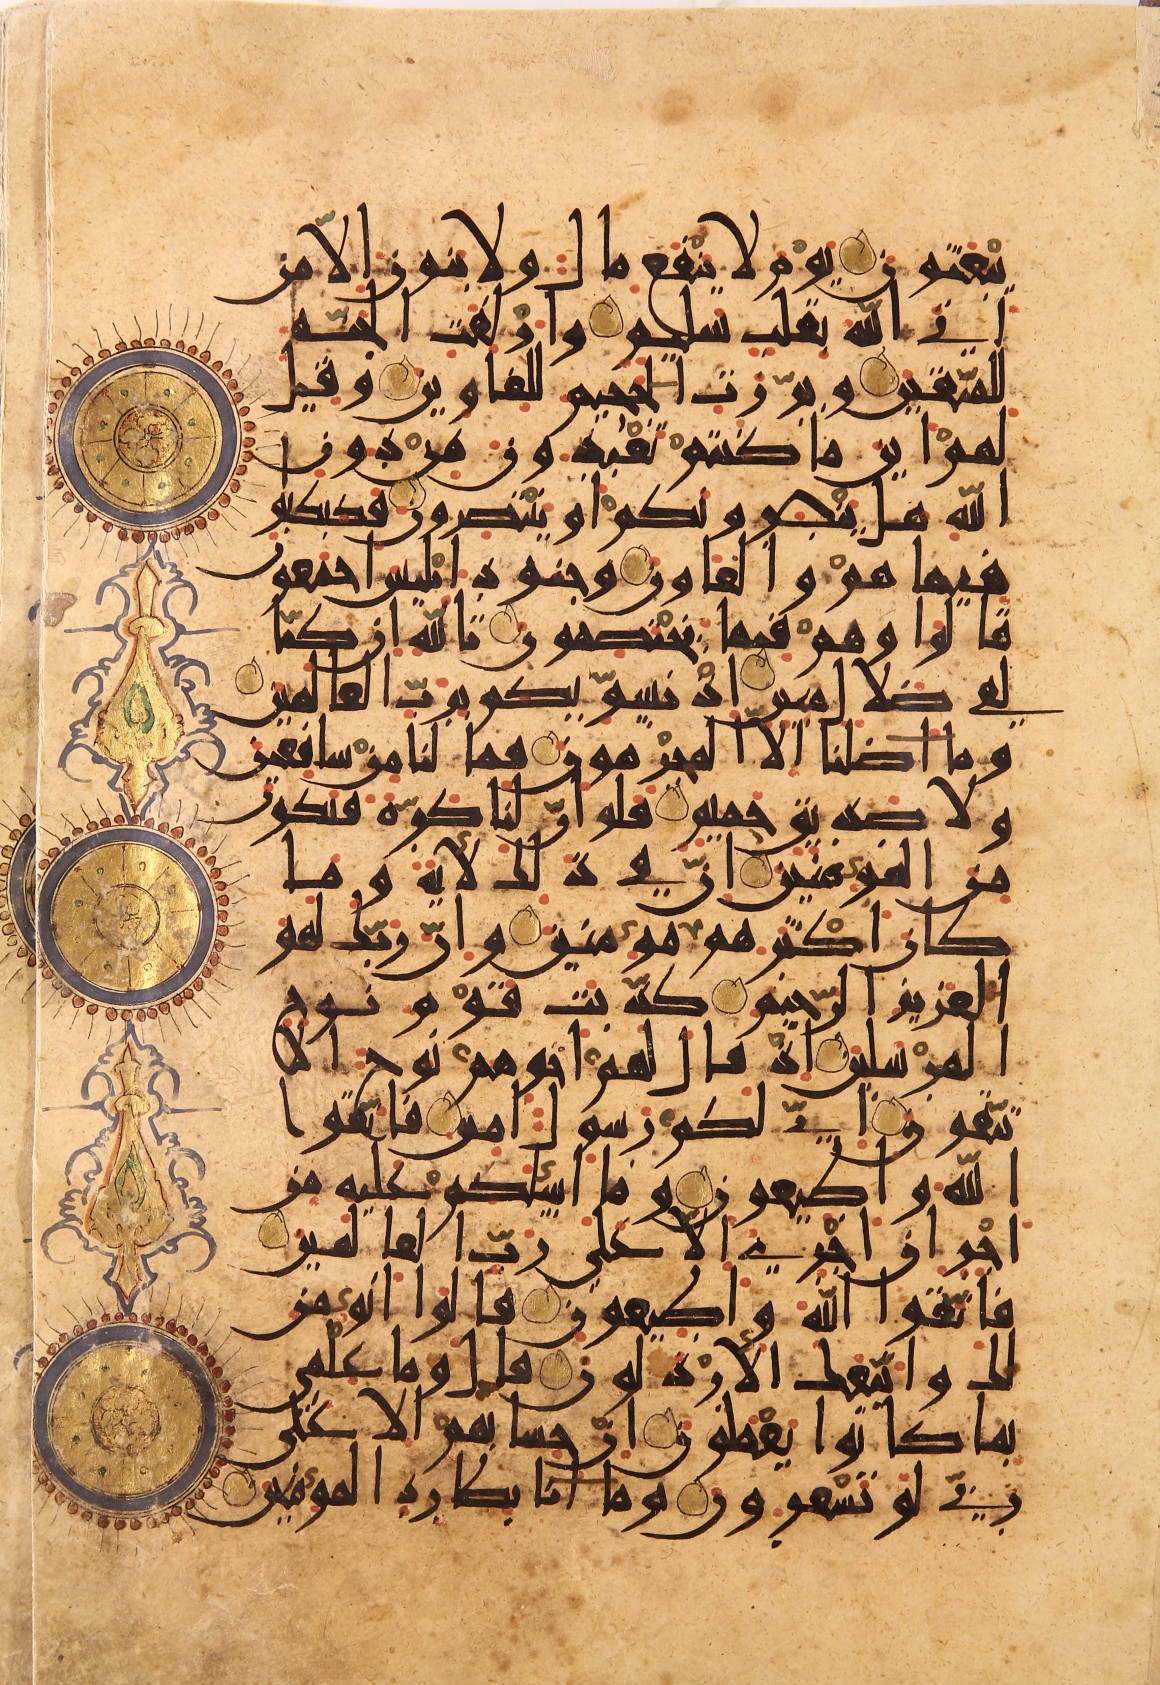 يبعثون يوم لا ينفع مال ولا بنون الا من
اتى الله بقلب سليم وازلفت الجنة
للمتقين وبرّزت الجحيم للغاوين وقيل
لهم اين ما كنتم تعبدون من دون
الله هل ينصرونكم او ينتصرون فكبكبوا
فيها هم والغاون وجنود ابليس اجمعون
قالوا وهم فيها يختصمون تالله ان كنّا
لفي ضلال مبين اذ نسوّيكم بربّ العالمين
وما اضلنا الا المجرمون فما لنا من شافعين
ولا صديق حميم فلو انّ لنا كرّة فنكون
من المؤمنين انّ في ذلك لاية وما
كان اكثرهم مؤمنين وانّ ربّك لهو
العزيز الرّحيم كذّبت قوم نوح
المرسلين اذ قال لهم اخوهم نوح الا
تتّقون انّي لكم رسول امين فاتّقوا
الله واطيعون وما اسئلكم عليه من
اجر ان اجري الّا على ربّ العالمين
فاتّقوا الله واطيعون قالوا انؤمن
لك واتّبعك الارذلون قال وما علمي
بما كانوا يعملون انّ حسابهم الا على
ربّي لو تشعرون وما انا بطارد المؤمنين